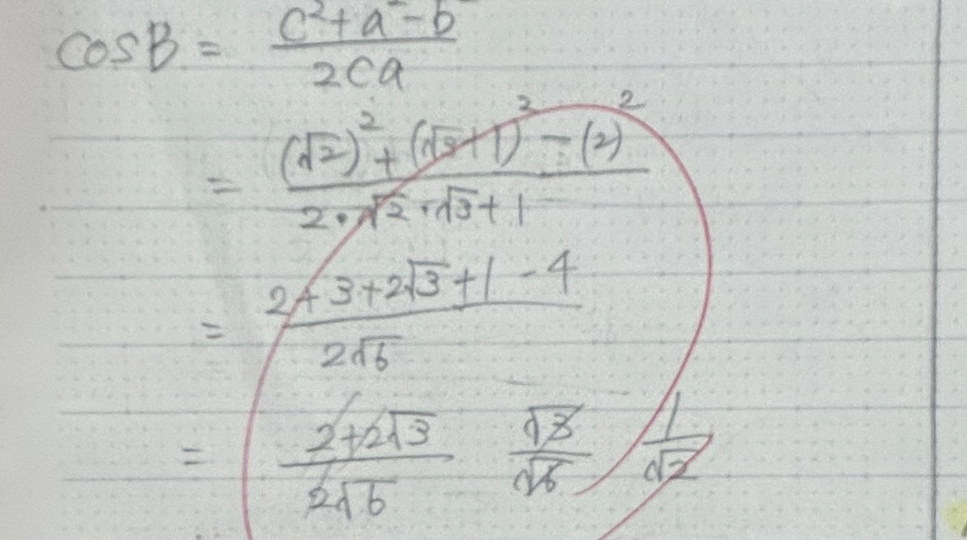 cosB = (c²+a²-b²)/(2ca)
= ((√2)²+(√3+1)²-(2)²)/(2・√2・√3+1)
= (2+3+2√3+1-4)/(2√6)
= (2+2√3)/(2√6) √3/√6 1/√2